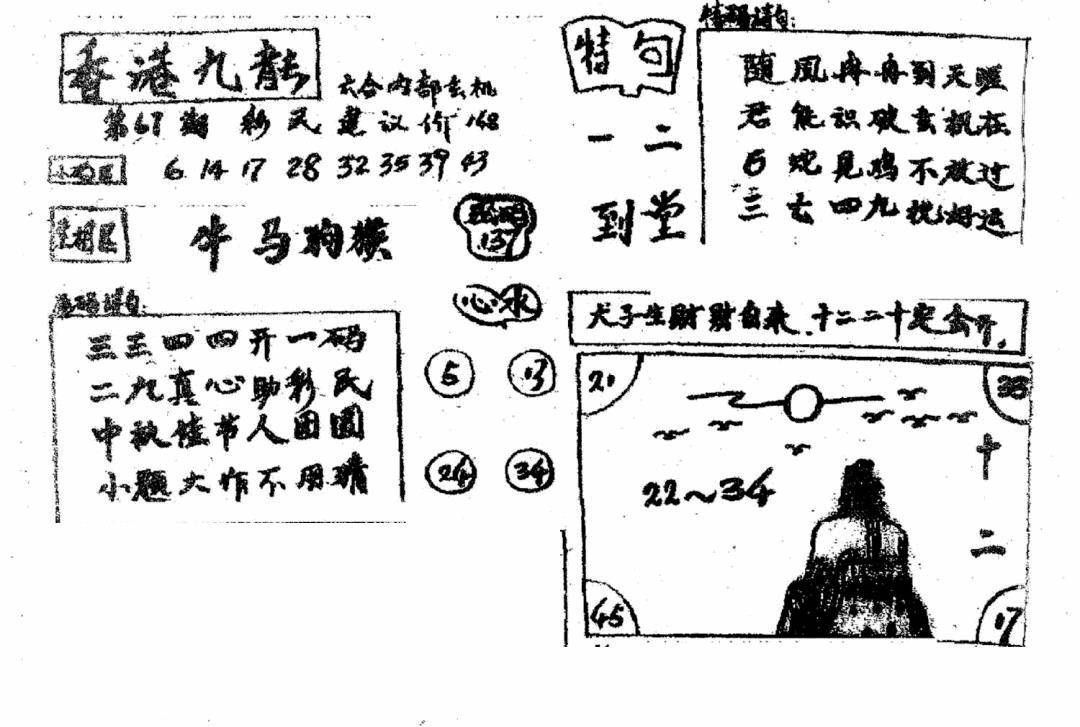 香港九龍
六合内部玄机
第67期 彩民 建议价168
6 14 17 28 32 35 39 43
牛马狗猴
137
心水
5 13
24 34
三三四四开一码
二九真心助彩民
中秋佳节人团圆
小题大作不用猜
特句
一二
到堂
特码诗句:
随風冉冉到天照
君能识破玄机在
6蛇见鸡不放过
三六四九找好运
犬子生财财自来.十二二十定会开.
21
35
22~34
十二
45
17